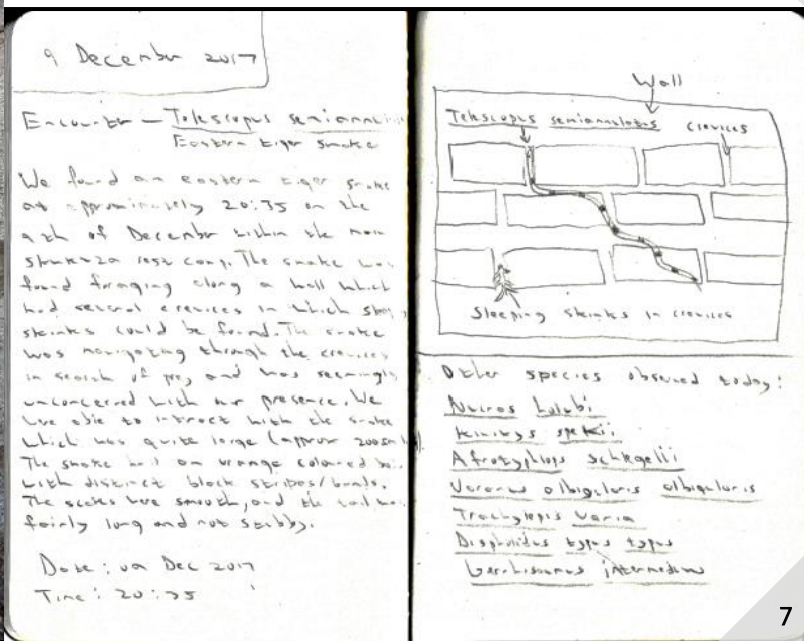 9 December 2017
Encounter – Telescopus
Eastern tiger snake
We found an eastern tiger snake
at approximately 20:35 on the
9th of December within the main
rest camp. The snake was
found foraging along a wall which
had several crevices in which
skinks could be found. The snake
was navigating through the crevices
in search of prey and was seemingly
unconcerned with our presence. We
were able to interact with the snake
which was quite large (approx
The snake had an orange coloured
with distinct black stripes/bands.
The scales were smooth, and the tail was
fairly long and not stubby.
Date: 09 Dec 2017
Time: 20:35
Wall
Telescopus semiannulatus
crevices
Sleeping skinks in crevices
Other species observed today:
Nucras holubi
Kinixys spekii
Afrotyphlops schlegelii
Varanus albigularis albigularis
Trachylepis varia
Dispholidus typus typus
Gerrhosaurus intermedius
7